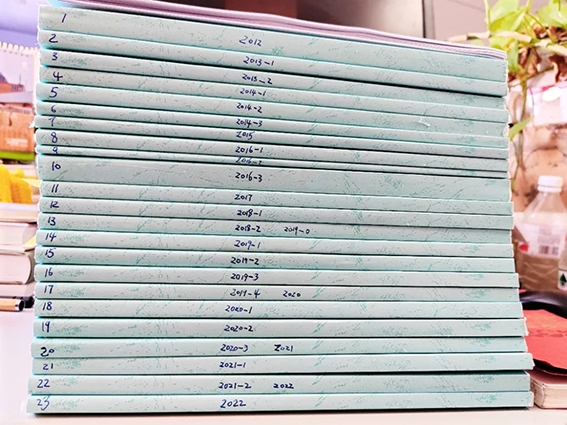 1
2 2012
3 2013-1
4 2013-2
5 2014-1
6 2014-2
7 2014-3
8 2015
9 2016-1
2016-2
10 2016-3
11 2017
12 2018-1
13 2018-2 2019-0
14 2019-1
15 2019-2
16 2019-3
17 2019-4 2020
18 2020-1
19 2020-2
20 2020-3 2021
21 2021-1
22 2021-2 2022
23 2022